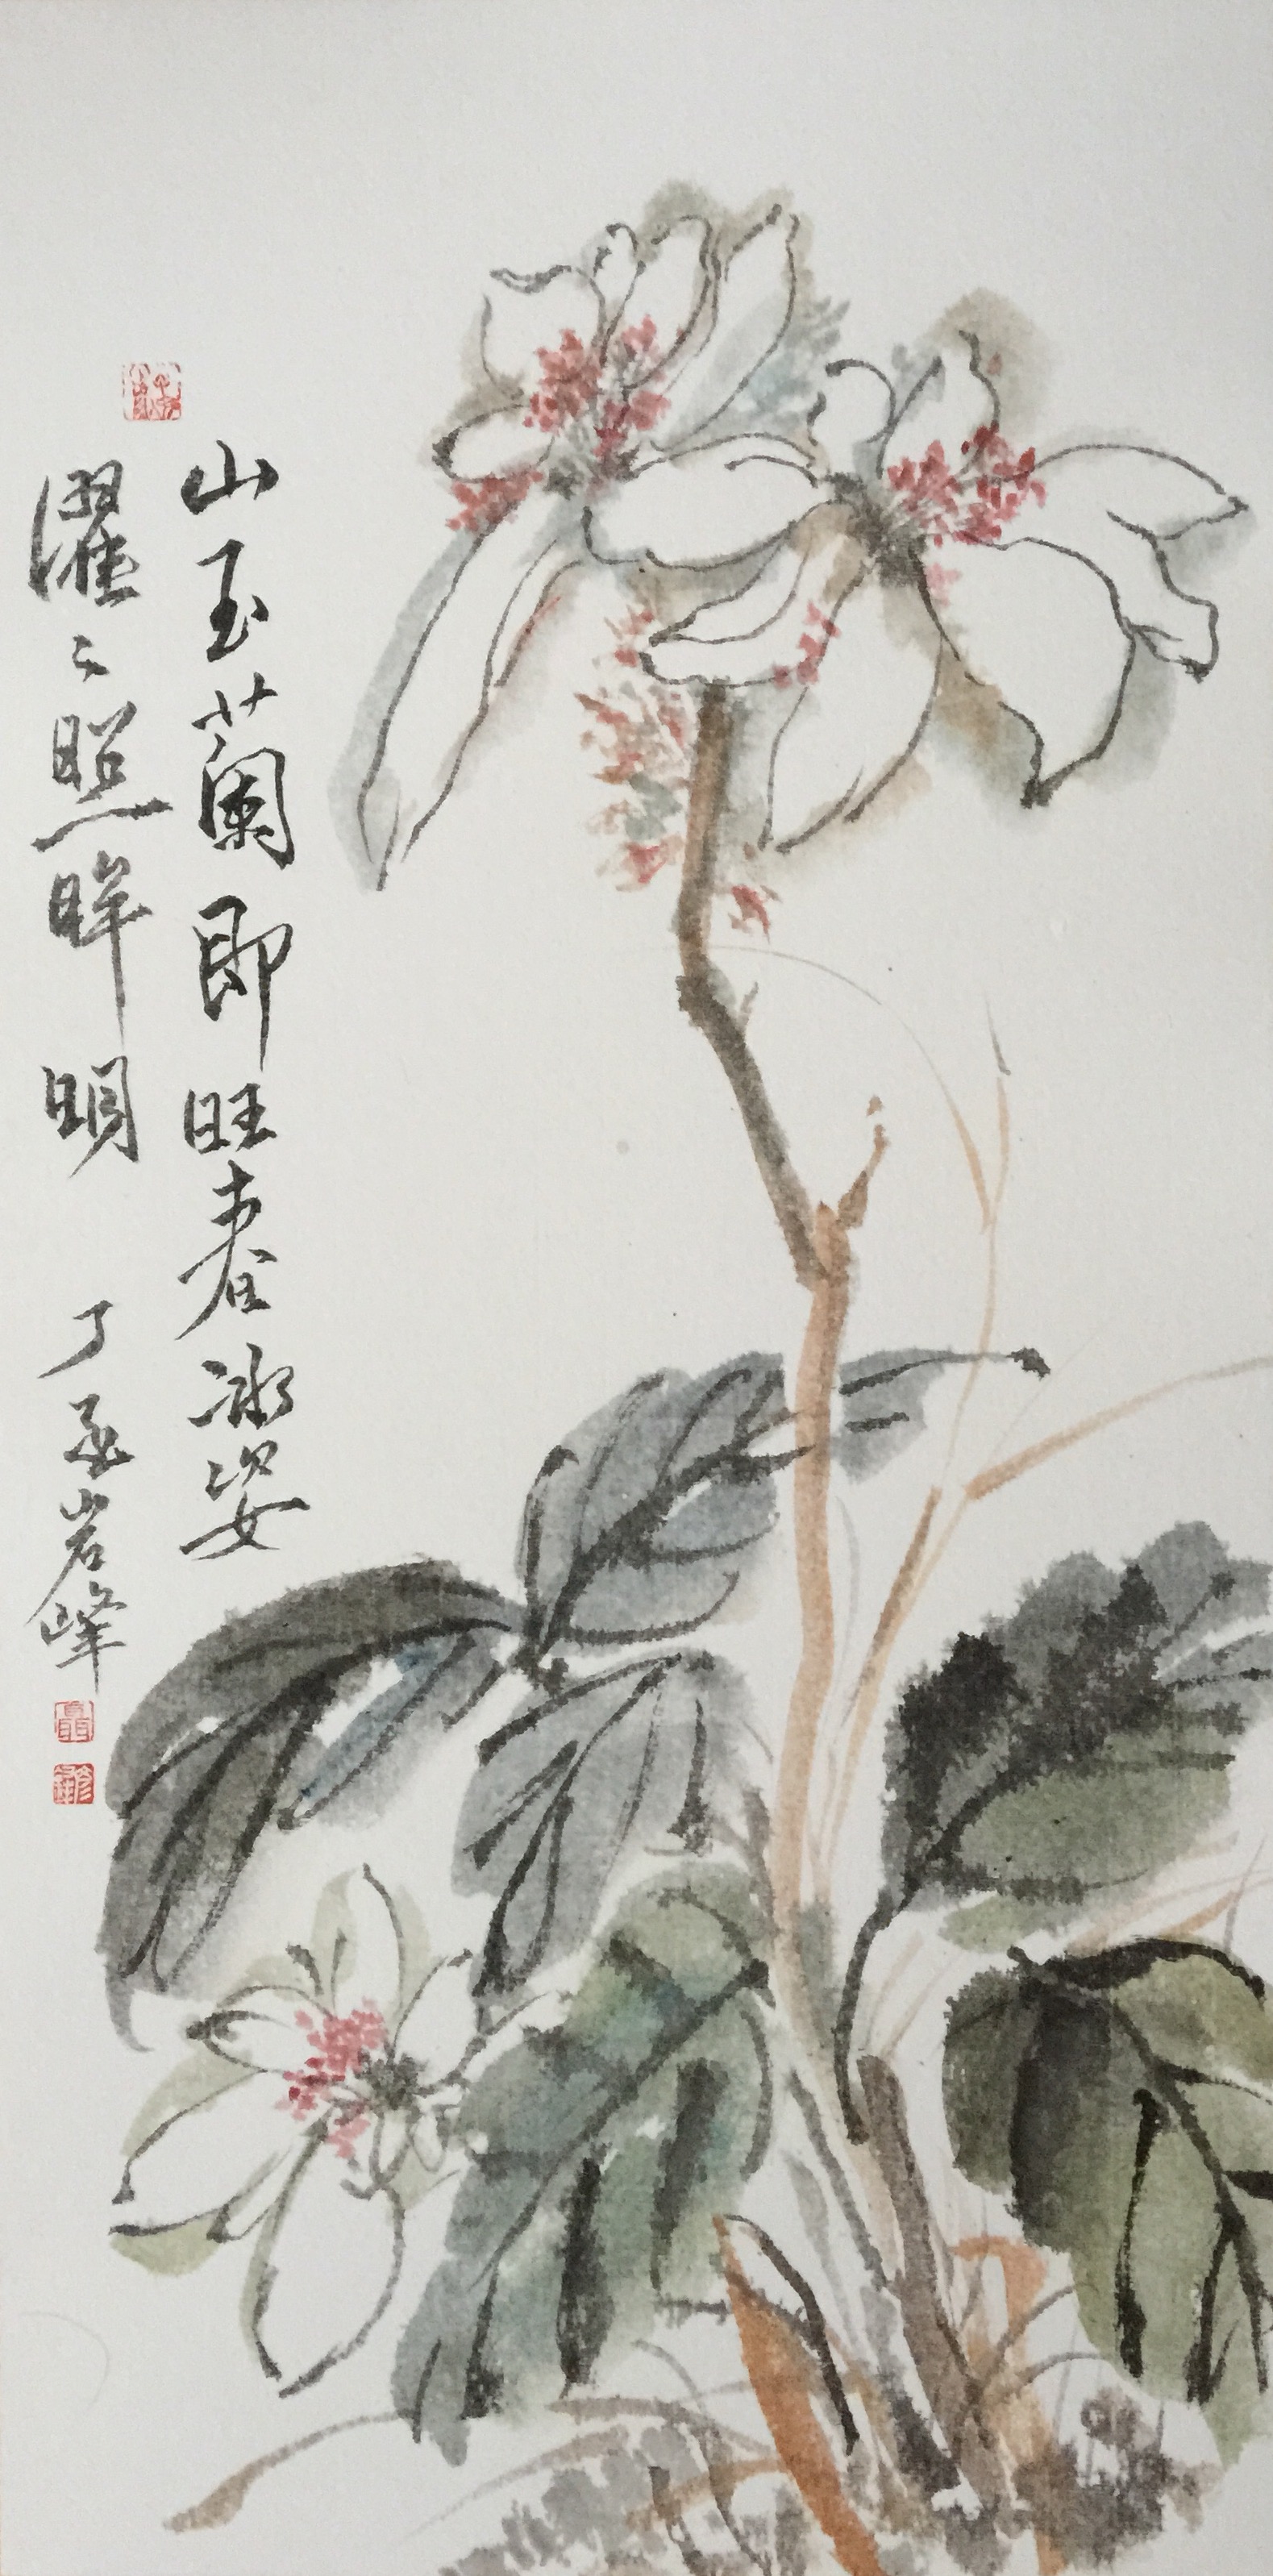 山玉蘭即旺春冰姿
濯〻照眸明 丁丞岩峰